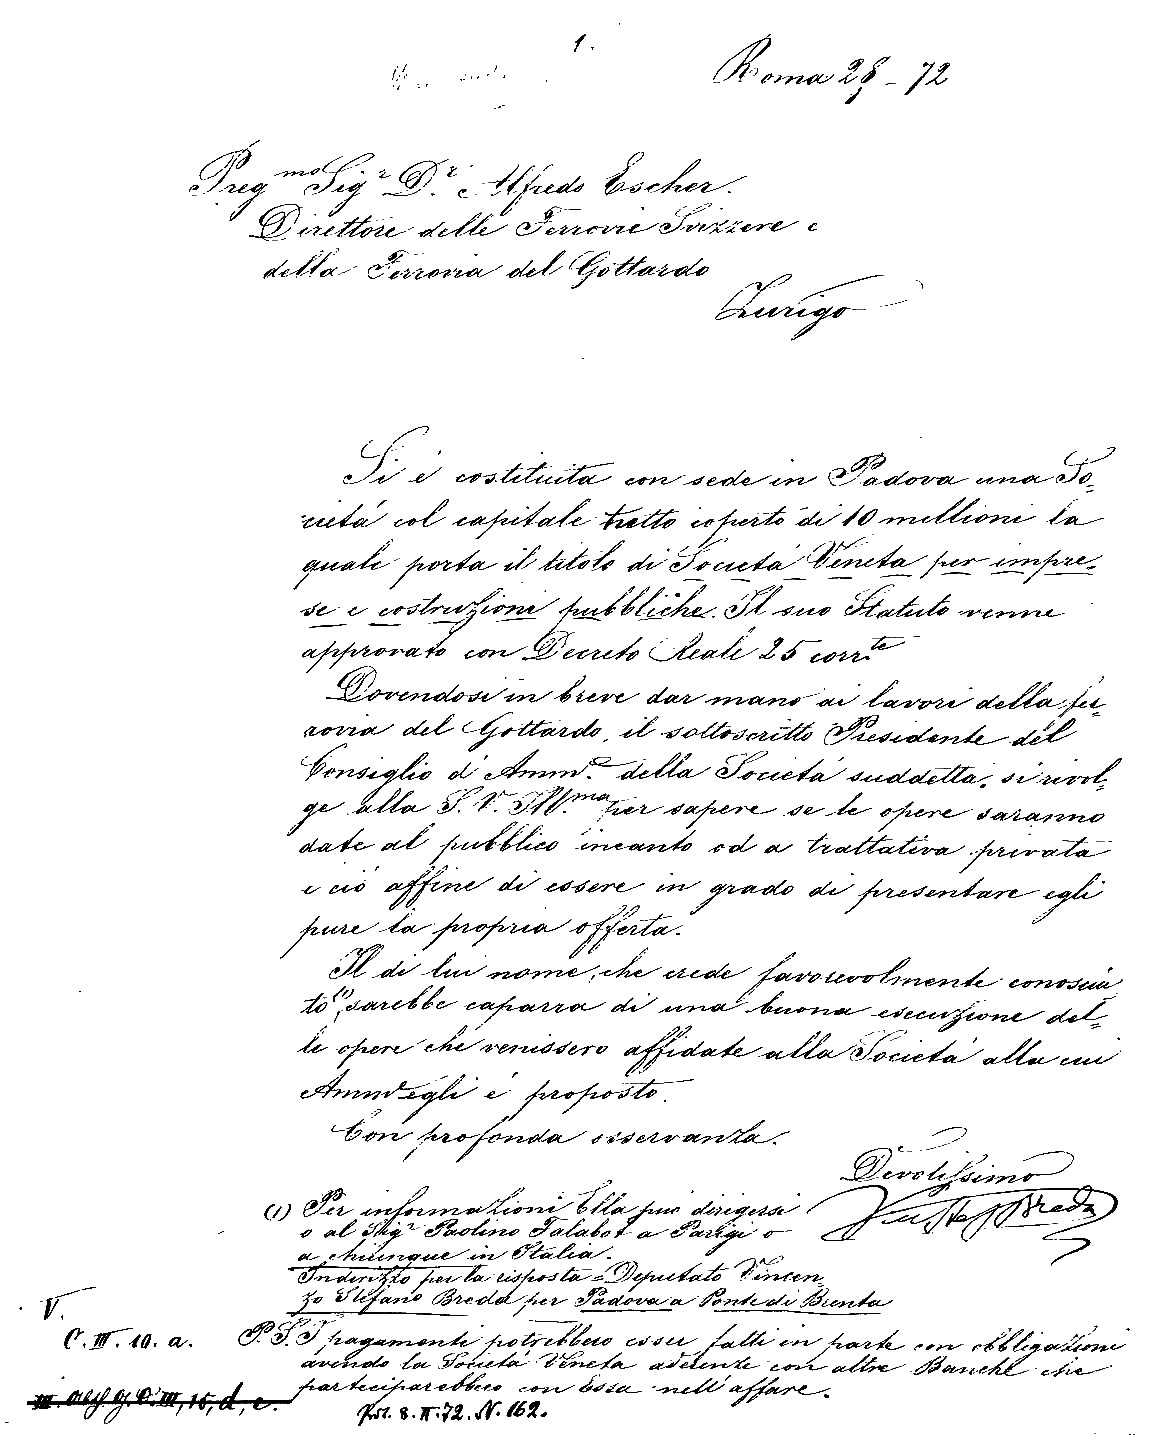 1.
Roma 28 - 72
Preg.mo Sig.r D.r Alfredo Escher.
Direttore delle Ferrovie Svizzere e
della Ferrovia del Gottardo
Zurigo
Si é costituita con sede in Padova una So-
cietá col capitale tutto coperto di 10 millioni la
quale porta il titolo di Societá Veneta per impre-
se e costruzioni pubbliche. Il suo Statuto venne
approvato con Decreto Reale 25 corr.te
Dovendosi in breve dar mano ai lavori della fer-
rovia del Gottardo, il sottoscritto Presidente del
Consiglio d'Amm.e della Societá suddetta, si rivol-
ge alla S. V. Ill.ma per sapere se le opere saranno
date al pubblico incanto od a trattativa privata
e ció affine di essere in grado di presentare egli
pure la propria offerta.
Il di lui nome, che crede favorevolmente conosciu
to (1), sarebbe caparra di una buona esecuzione del-
le opere che venissero affidate alla Societá alla cui
Amm.e egli é preposto.
Con profonda osservanza.
Devotissimo
Vinc Stef Breda
(1) Per informazioni Ella puó dirigersi
o al Sig.r Paolino Talabot a Parigi o
a chiunque in Italia.
Indirizzo per la risposta = Deputato Vincen-
zo Stefano Breda per Padova a Ponte di Brenta
P. S. I pagamenti potrebbero esser fatti in parte con obbligazioni
avendo la Societá Veneta aderenze con altre Banche che
parteciparebbero con Essa nell'affare.
V.
C. III. 10. a.
III, 15, d, e.
Prt. 8. II. 72. N. 162.